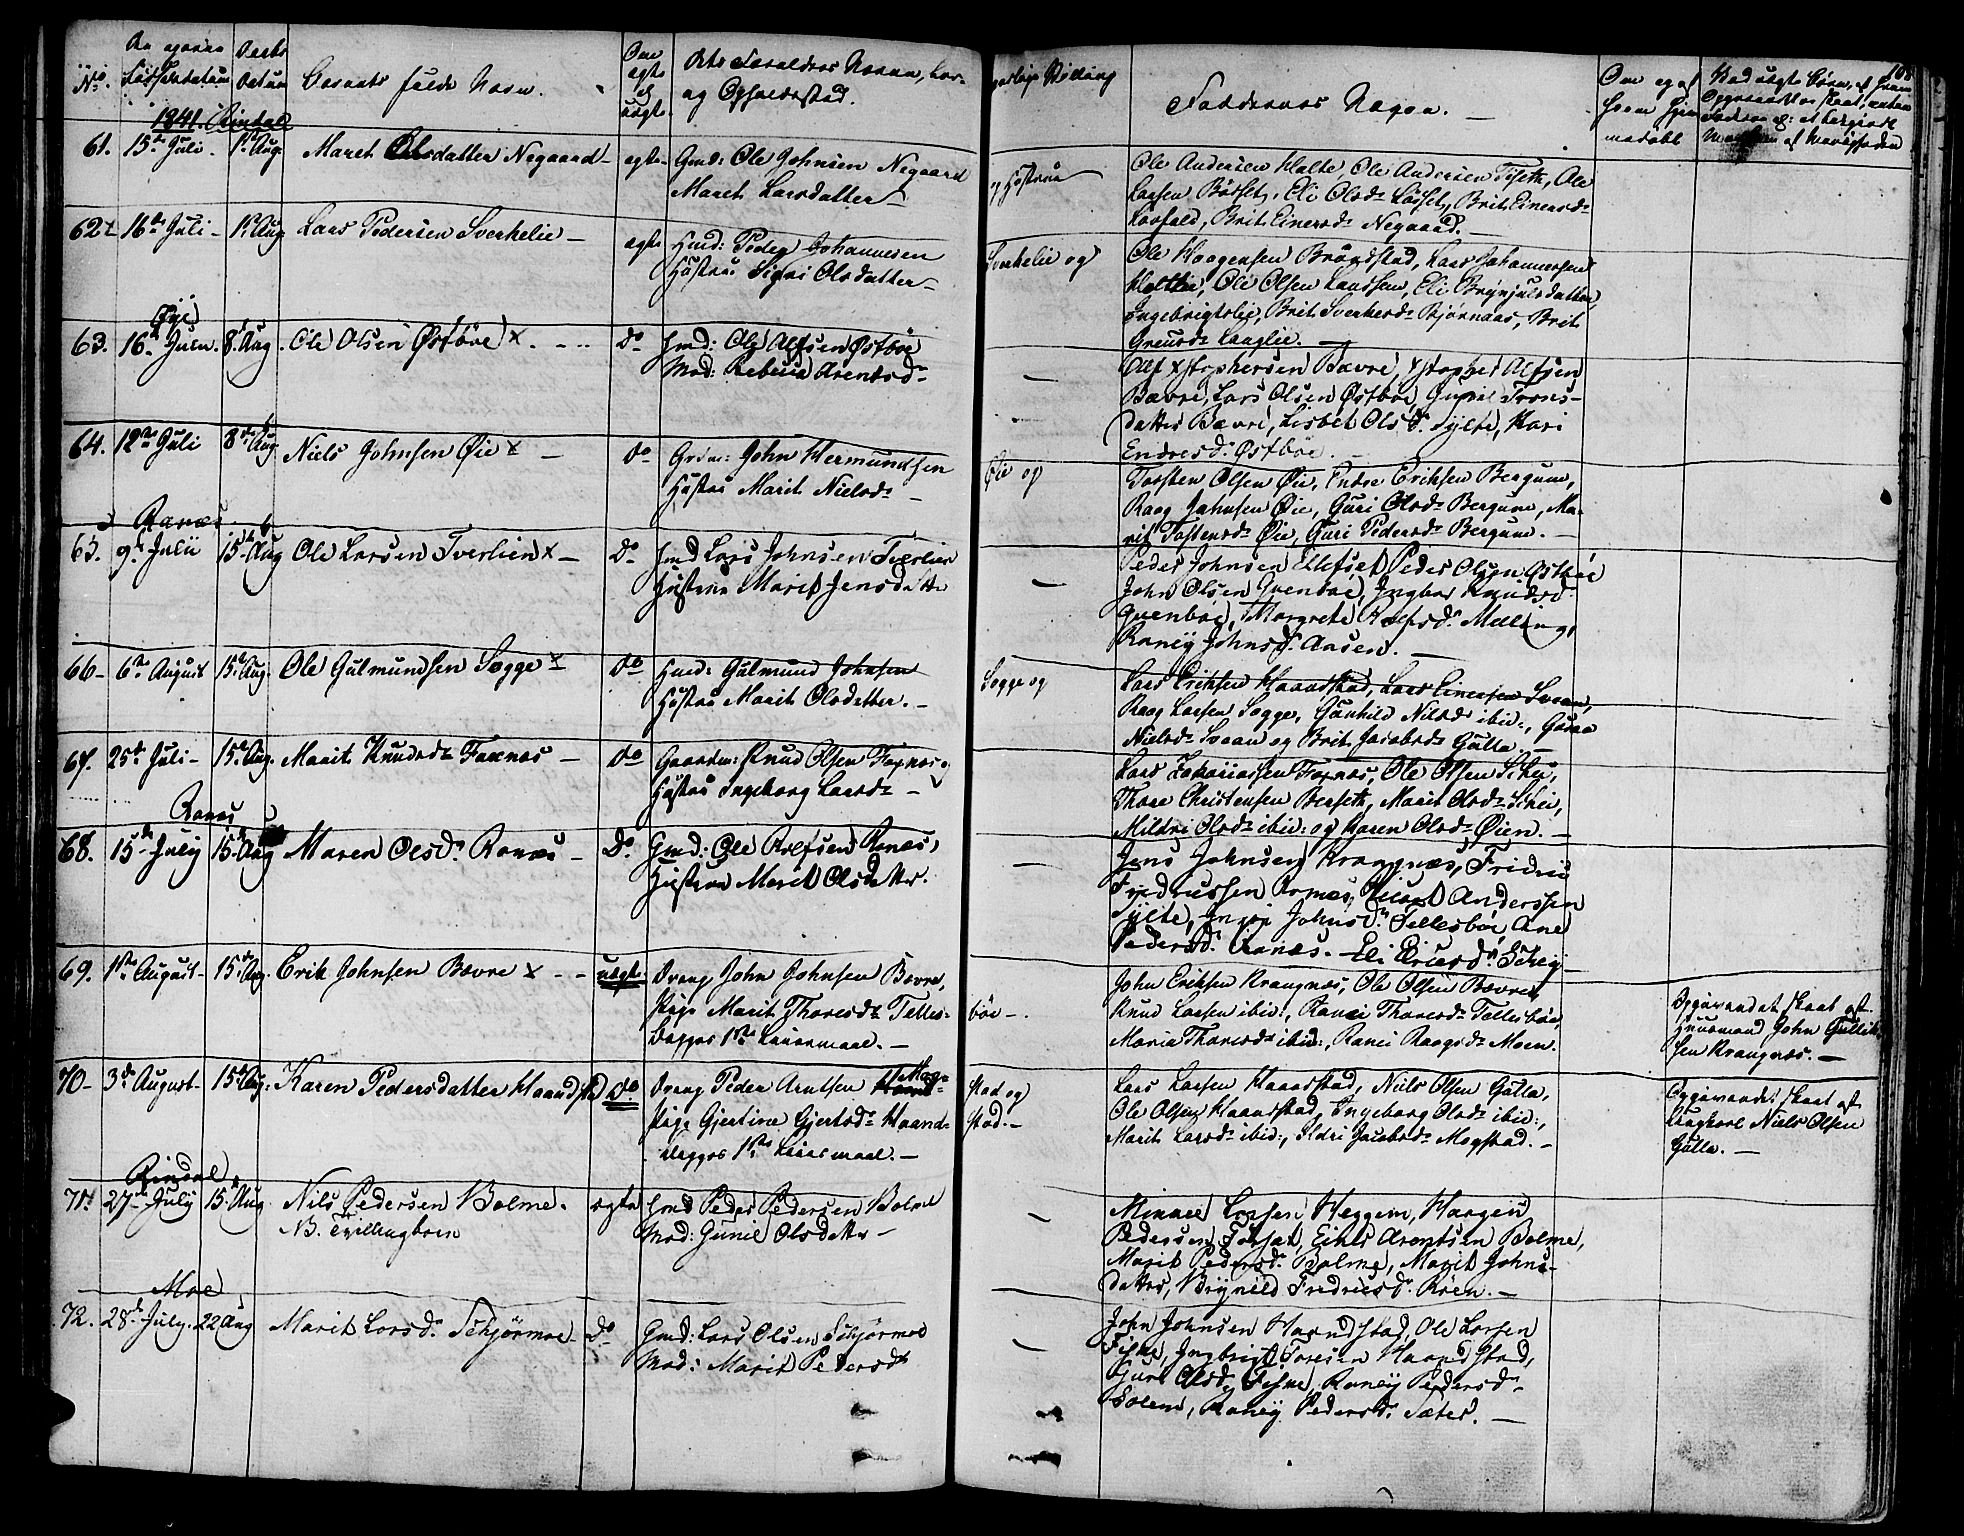 No. Fødselsdatum Daabs Datum Barnets fulde Navn. Om ægte el uægte Dets Forældres Navne, Bor-
og Opholdssted.
borgerlige Stilling
Faddernes Navne.
168
1841. Rindal
61. 15de Juli. 1ste Aug. Maret Olsdatter Negaard ægte Gmd: Ole Johnsen Negaard
Maret Larsdatter
og Hustrue
Ole Andersen Holte, Ole Andersen Tiseth, Ole
Larsen Børset, Eli Olsd. Løsset, Brit Einersd.
Løsfald, Brit Einersd. Negaard.
62 16de Juli 1ste Aug Lars Pedersen Sverkelie ægte Hmd: Peder Johannesen
Hustrue Sigri Olsdatter
Sverkelie og
Ole Haagensen Brandstad, Lars Johannessen
Holten, Ole Olsen Landsem, Eli Brynjulsdatter
Ingebrigtslie, Brit Sverkersd. Bjørnaas, Brit
Langlie.
Øye
63. 16. Juli. 8. Aug. Ole Olsen Østbøe x Do Hmd: Ole Alfsen Østbøe
Mod: Rebecca Arentsd.
Alf Kristophersen Bævre, Kristopher Alfsen
Bævre, Lars Olsen Østbøe, Gunil Trons-
datter Bævre, Lisbet Olsd. Sylte, Kari
Endresd. Østbøe.
64. 12te Juli 8de Aug Niels Johnsen Øie x do Grdm: John Hermundsen
Hustrue Marit Nielsd.
Øie og
Torsten Olsen Øie, Endre Eriksen Bergum,
Roag Johnsen Øie, Guri Olsd. Bergum, Ma-
rit Tostensd. Øie, Guri Pedersd. Bergum.
Ranæs
65. 9de Julii 15de Aug Ole Larsen Tverlien x Do Hmd Lars Johnsen Tverlien
Hustrue Marit Jensdatter
Peder Johnsen Ellefset, Peder Olsen Østbøe
John Olsen Gvenbøe, Ingbor Knudsd.
Gvenbøe, Margrete Rolfsd. Melling,
Raney Johnsd. Aasen.
66 6te August 15de Aug. Ole Gulmundsen Sogge x do Hmd: Gulmund Johnsen
Hustrue Marit Olsdatter.
Sogge og
Lars Eriksen Haandstad, Lars Einersen Svean,
Roag Larsen Sogge, Gunhild Nilsd. ibid:, Guroe
Nielsd. Svean og Brit Jacobsd. Gulla.
67. 25de Juli 15de Aug. Marit Knudsd. Foxnæs do Gaardm: Knud Olsen Foxnæs og
Hustrue Ingeborg Larsd.
Lars Zakariassen Foxnæs, Ole Olsen Schei,
Thore Christensen Berseth, Marit Olsd. Schei,
Mildri Olsd. ibid: og Karen Olsd. Øien.
Ranæs
68. 15de July 15de Aug Maren Olsd. Ranæs Do Gmd: Ole Rolfsen Ranæs,
Hustrue Marit Olsdatter.
Jens Johnsen Krangnæs, Fridric
Fridricssen Ranæs, Sivert Anderssen
Sylte, Johnsd. Tellesbøe, Ane
Pedersd. Ranæs. Eli Ericsd. Schey
69. 1ste August 15de Aug. Erik Johnsen Bævre x uægte Dreng John Johnsen Bævre,
Pige Marit Thoresd. Telles-
begges 1ste Leiermaal.
bøe
John Eriksen Krangnæs, Ole Olsen Bævre,
Knud Larsen ibid:, Ranei Thoresd. Tellesbøe,
Maria Thoresd. ibid:, Ranei Roagsd. Moen.
Opgivendet skeet af
Huusmand John Gullik-
sen Krangnæs.
70 3de August 15de Aug: Karen Pedersdatter Haandstad Do Dreng Peder Arntsen Mog-
Pige Gjertine Gjertsd. Haand-
begges 1ste Leiermaal.
stad og
stad.
Lars Larsen Haandstad, Niels Olsen Gulla,
Ole Olsen Haandstad, Ingeborg Olsd. ibid:,
Marit Larsd. ibid:, Ildri Jacobsd. Mogstad.
Opgivendet skeet af
Ungkarl Niels Olsen
Gulla.
Rindal
71. 27de July 15. Aug Nils Pedersen Bolme. ægte Hmd Peder Pedersen Bolme
NB. Tvillingbarn Mod: Gunil Olsdatter
Mikkel Larsen Heggem, Haagen
Pedersen Forset, Arentsen Bolme,
Marit Pedersd. Bolme, Marit Johns-
datter, Brynild Fredricsd. Røen.
Moe
72. 28de July. 22 Aug Marit Larsd. Schjørmoe Do Gmd: Lars Olsen Schjørmoe
Mod: Marit Pedersdt
John Johnsen Haandstad, Ole Larsen
Fiske, Ingbrigt Toresen Haandstad,
Guri Olsd. Fiske, Raney Pedersd.
Solem, Raney Pedersd. Sæter.